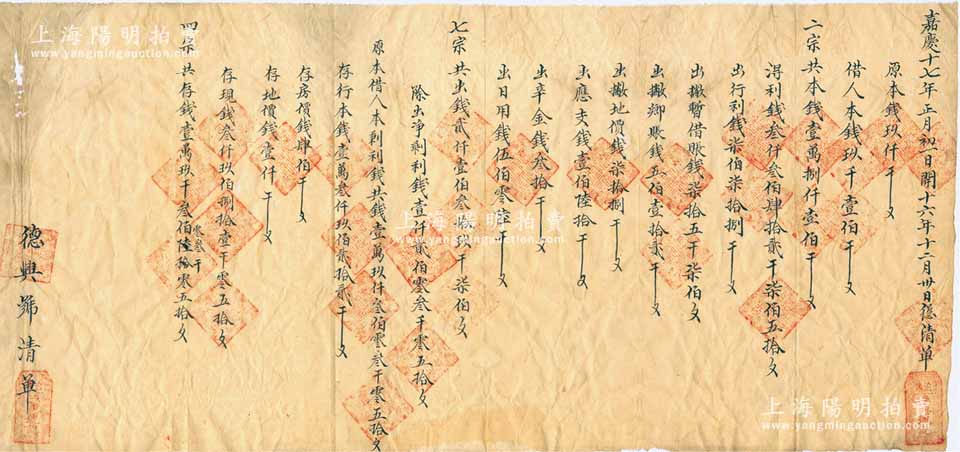 嘉慶十七年正月初一日開十六年十二月卅日後清單
原本錢玖仟千文
借人本錢玖千壹伯千文
二宗共本錢壹萬捌仟壹伯千文
淂利錢叁仟叁伯肆拾貳千柒伯五拾文
出行利錢柒伯柒拾捌千文
出撇暫借賬錢柒拾五千柒伯文
出撇鄉賬錢五伯壹拾貳千文
出撇地價錢柒拾捌千文
出應支錢壹伯陸拾千文
出辛金錢叁拾千文
出日用錢伍伯零陸千文
七宗共出錢貳仟壹伯叁拾玖千柒伯文
除出净剩利錢壹仟貳伯零叁千零五拾文
原本借人本剩利錢共錢壹萬玖仟叁伯零叁千零五拾文
存行本錢壹萬叁仟玖伯貳拾貳千文
存房價錢肆伯千文
存地價錢壹仟千文
存現錢叁仟玖伯捌拾壹千零五拾文
四宗共存錢壹萬玖千叁伯零叁千零五拾文
德興號清單
上海陽明拍賣
www.yangmingauction.com
上海陽明拍賣
上海陽明拍賣
www.yangmingauction.com